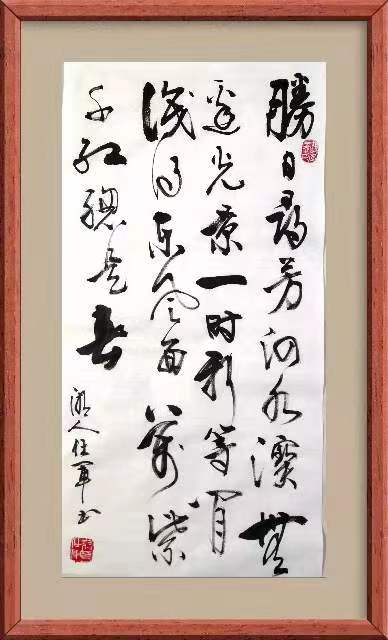 勝日尋芳泗水濱無
邊光景一时新等閒
識得东风面萬紫
千紅總是春
湘人任軍书